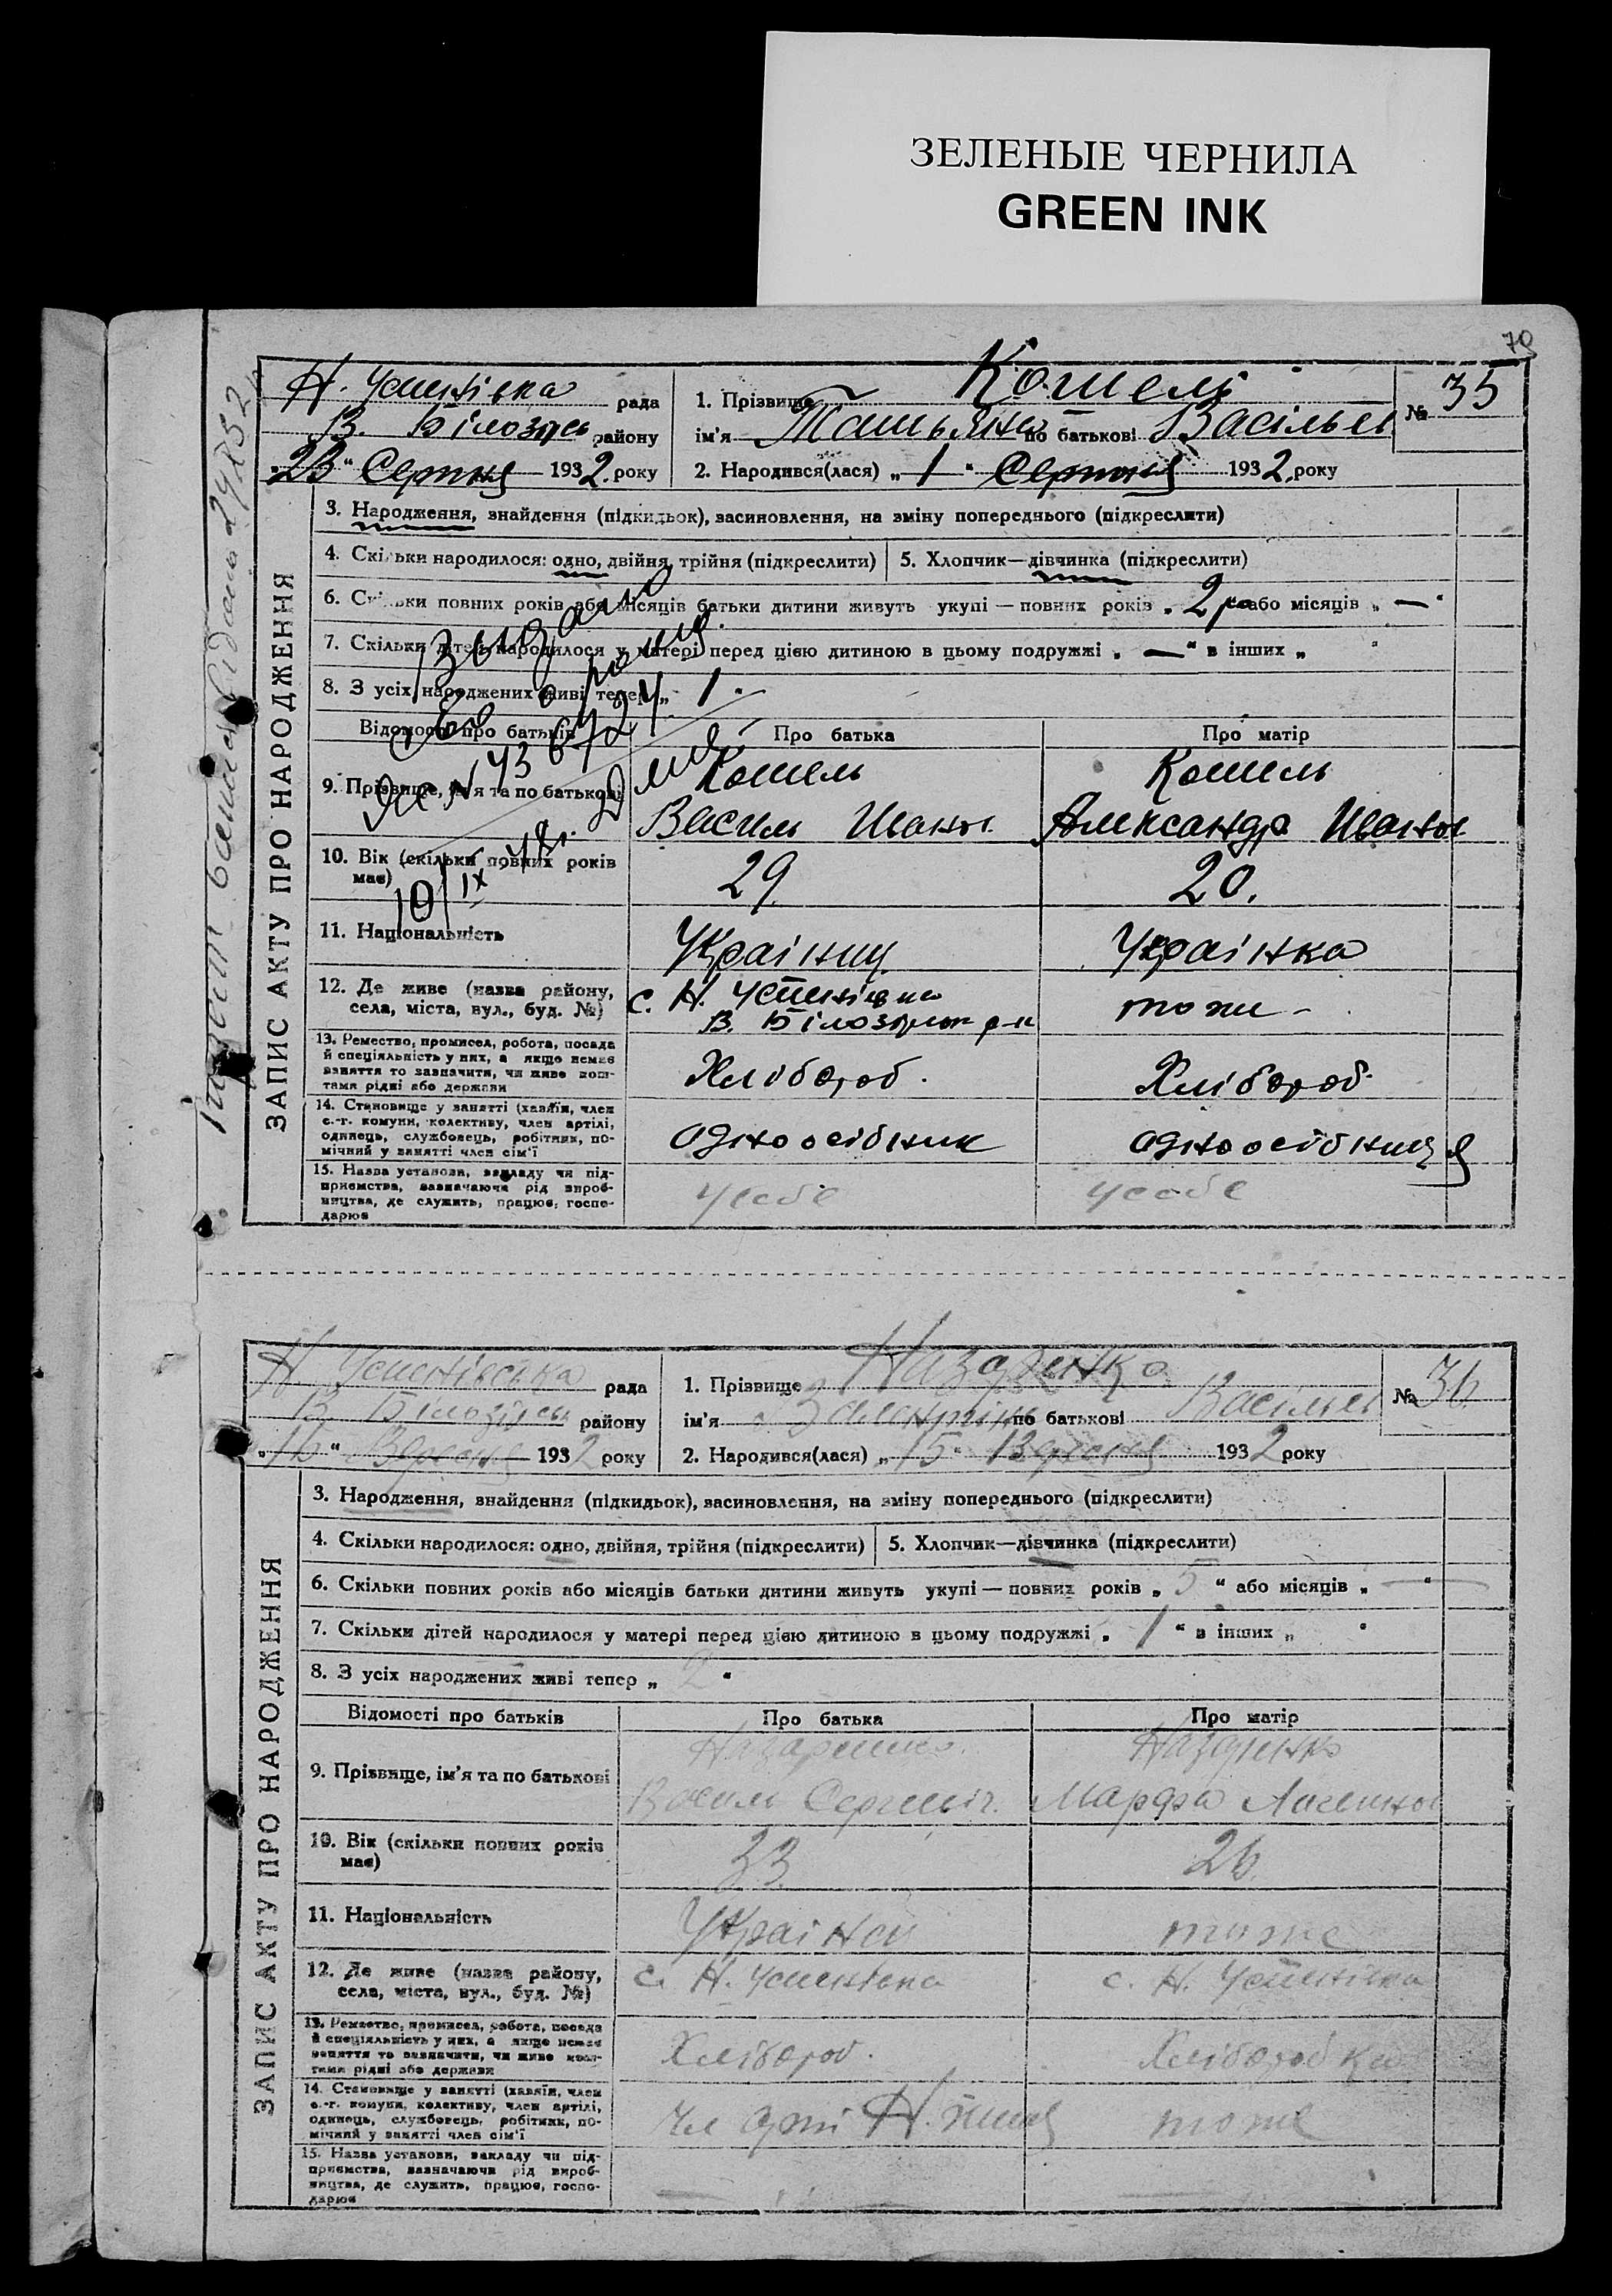 ЗЕЛЕНЫЕ ЧЕРНИЛА
GREEN INK
70
Н. Успенівка рада
В. Білозірсь району
"23" Серпня 1932 року
1. Прізвище Кошель
ім'я Татьяна по батькові Васільев
№ 35
2. Народився(лася) „1" Серпня 1932 року
ЗАПИС АКТУ ПРО НАРОДЖЕННЯ
3. Народження, знайдення (підкидьок), засиновлення, на зміну попереднього (підкреслити)
4. Скільки народилося: одно, двійня, трійня (підкреслити)
5. Хлопчик—дівчинка (підкреслити)
6. Скільки повних років або місяців батьки дитини живуть укупі — повних років „2" або місяців „—"
7. Скільки дітей народилося у матері перед цією дитиною в цьому подружжі „—" в інших „ "
8. З усіх народжених живі тепер „1"
Выдано
Відомості про батьків
Про батька
Про матір
9. Прізвище, ім'я та по батькові
Кошель
Василь Иванов
Кошель
Александра Иванов
10. Вік (скільки повних років має)
29
20.
11. Національність
Українц
Українка
12. Де живе (назва району, села, міста, вул., буд. №)
с. Н. Успенівка
В. Білозірсь р-н
тоже
13. Ремество, промисел, робота, посада й спеціяльність у них, а якщо немає заняття то зазначити, чи живе коштами рідні або держави
Хлібороб.
Хлібороб
14. Становище у занятті (хазяїн, член с.-г. комуни, колективу, член артілі, одинець, службовець, робітник, помічний у занятті член сім'ї
одноосібник
одноосібниця
15. Назва установи, закладу чи підприємства, зазначаючи рід виробництва, де служить, працює, господарює
у себе
у себе
Н Успенівська рада
В Білозірськ району
"16" Вересня 1932 року
1. Прізвище Назаренко
ім'я по батькові Васільев
№ 36
2. Народився(лася) „15" Вересня 1932 року
ЗАПИС АКТУ ПРО НАРОДЖЕННЯ
3. Народження, знайдення (підкидьок), засиновлення, на зміну попереднього (підкреслити)
4. Скільки народилося: одно, двійня, трійня (підкреслити)
5. Хлопчик—дівчинка (підкреслити)
6. Скільки повних років або місяців батьки дитини живуть укупі — повних років „5" або місяців „—"
7. Скільки дітей народилося у матері перед цією дитиною в цьому подружжі „1" в інших „ "
8. З усіх народжених живі тепер „2"
Відомості про батьків
Про батька
Про матір
9. Прізвище, ім'я та по батькові
Назаренко
Василь Сергеевіч.
Назаренко
Марфа
10. Вік (скільки повних років має)
33
26.
11. Національність
Українец
тоже
12. Де живе (назва району, села, міста, вул., буд. №)
с. Н. Успенівка
с. Н. Успенівка
13. Ремество, промисел, робота, посада й спеціяльність у них, а якщо немає заняття то зазначити, чи живе коштами рідні або держави
Хлібороб.
Хліборобка
14. Становище у занятті (хазяїн, член с.-г. комуни, колективу, член артілі, одинець, службовець, робітник, помічний у занятті член сім'ї
Чл арті
тоже
15. Назва установи, закладу чи підприємства, зазначаючи рід виробництва, де служить, працює, господарює